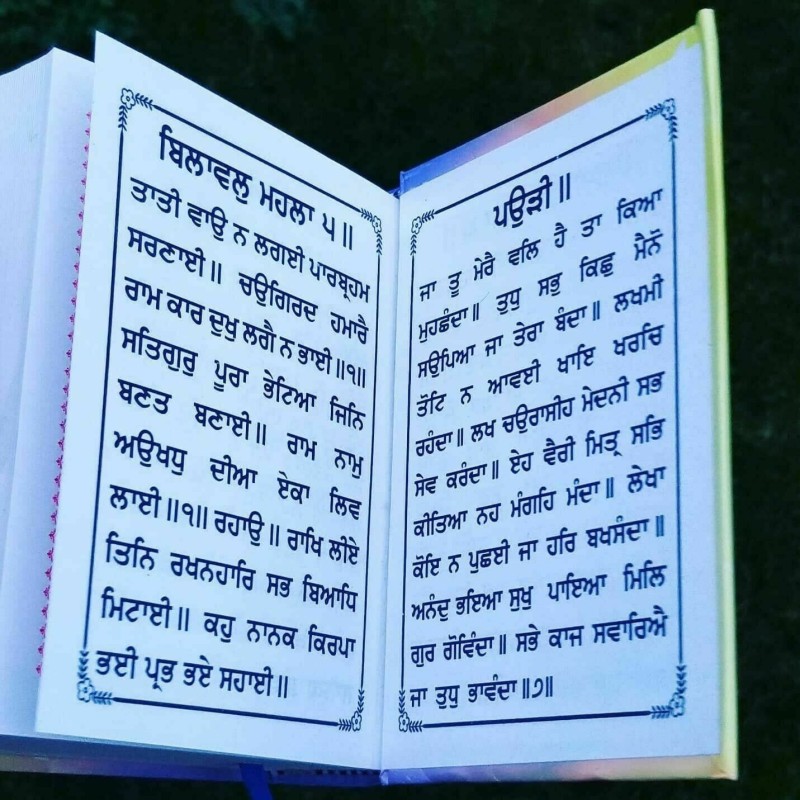 ਬਿਲਾਵਲੁ ਮਹਲਾ ੫॥
ਤਾਤੀ ਵਾਉ ਨ ਲਗਈ ਪਾਰਬ੍ਰਹਮ
ਸਰਣਾਈ॥ ਚਉਗਿਰਦ ਹਮਾਰੈ
ਰਾਮ ਕਾਰ ਦੁਖੁ ਲਗੈ ਨ ਭਾਈ॥੧॥
ਸਤਿਗੁਰੁ ਪੂਰਾ ਭੇਟਿਆ ਜਿਨਿ
ਬਣਤ ਬਣਾਈ॥ ਰਾਮ ਨਾਮੁ
ਅਉਖਧੁ ਦੀਆ ਏਕਾ ਲਿਵ
ਲਾਈ॥੧॥ ਰਹਾਉ॥ ਰਾਖਿ ਲੀਏ
ਤਿਨਿ ਰਖਨਹਾਰਿ ਸਭ ਬਿਆਧਿ
ਮਿਟਾਈ॥ ਕਹੁ ਨਾਨਕ ਕਿਰਪਾ
ਭਈ ਪ੍ਰਭ ਭਏ ਸਹਾਈ॥
ਪਉੜੀ॥
ਜਾ ਤੂ ਮੇਰੈ ਵਲਿ ਹੈ ਤਾ ਕਿਆ
ਮੁਹਛੰਦਾ॥ ਤੁਧੁ ਸਭੁ ਕਿਛੁ ਮੈਨੋ
ਸਉਪਿਆ ਜਾ ਤੇਰਾ ਬੰਦਾ॥ ਲਖਮੀ
ਤੋਟਿ ਨ ਆਵਈ ਖਾਇ ਖਰਚਿ
ਰਹੰਦਾ॥ ਲਖ ਚਉਰਾਸੀਹ ਮੇਦਨੀ ਸਭ
ਸੇਵ ਕਰੰਦਾ॥ ਏਹ ਵੈਰੀ ਮਿਤ੍ਰ ਸਭਿ
ਕੀਤਿਆ ਨਹ ਮੰਗਹਿ ਮੰਦਾ॥ ਲੇਖਾ
ਕੋਇ ਨ ਪੁਛਈ ਜਾ ਹਰਿ ਬਖਸੰਦਾ॥
ਅਨੰਦੁ ਭਇਆ ਸੁਖੁ ਪਾਇਆ ਮਿਲਿ
ਗੁਰ ਗੋਵਿੰਦਾ॥ ਸਭੇ ਕਾਜ ਸਵਾਰਿਐ
ਜਾ ਤੁਧੁ ਭਾਵੰਦਾ॥੭॥